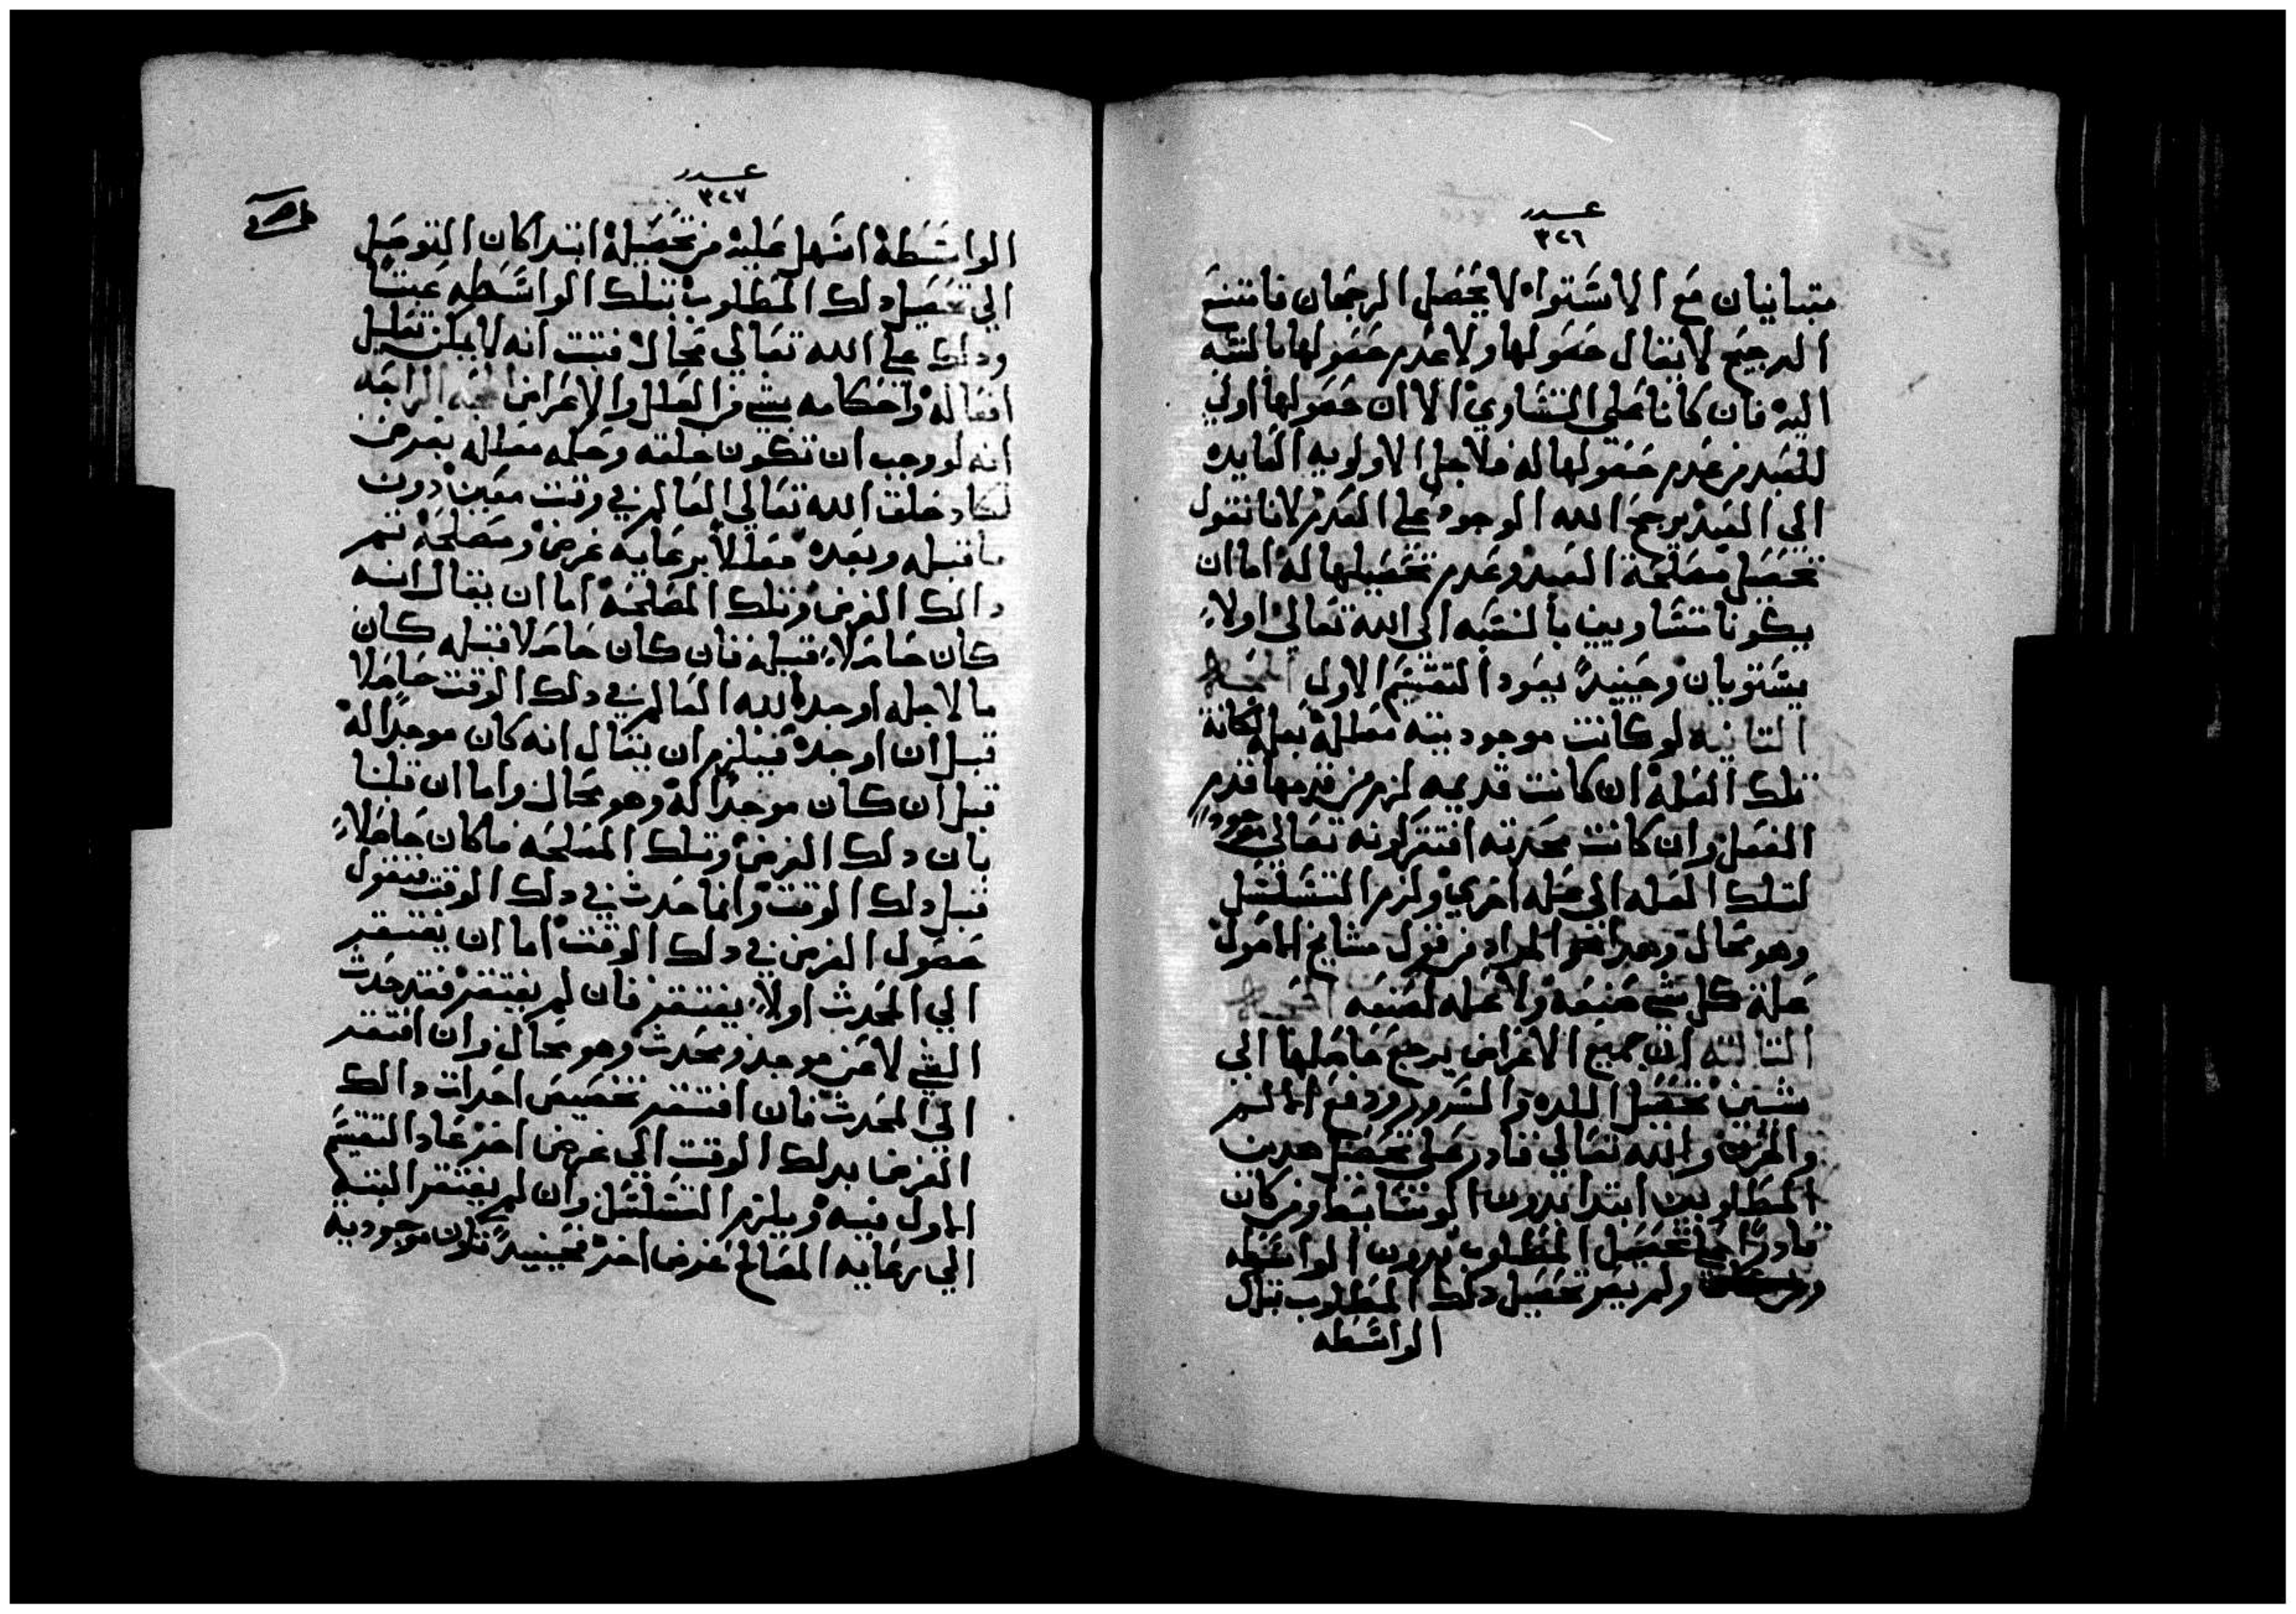 عدد
٣٢٦
متباينان مع الاستواء لا يحصل الرجحان فامتنع
الترجيح لا يقال حصولها ولا عدم حصولها بالنسبه
اليه فان كانا على التساوي الا ان حصولها اولي
للعبد من عدم حصولها له فلاجل الاولويه العايده
الى العبد يرجح الله الوجود على العدم لانا نقول
تحصيل مصلحة العبد وعدم تحصيلها له اما ان
يكونا متساويين بالنسبه الى الله تعالي اولا
يستويان وحينيدً يعود التقسيم الاول الحجه
التانيه لو كانت موجوديته معلله بعله لكانة
تلك العله ان كانت قديمه لزم من قدمها قدم
الفعل وان كانت محدته افتقر كونه تعالي موجودا
لتلك العله الى عله اخري ولزم التسلسل
وهو محال وهدا هو المراد من قول مشايخ الاصول
علة كل شي صنعه ولا عله لصنعه الحجه
التالته ان جميع الاغراض يرجع حاصلها الي
شيين تحصيل اللده والسرور ودفع الالم
والحزن والله تعالي قادر علي تحصيل هدين
المطلوبين ابتدا بدون الوسايط ومن كان
قادرًا علي تحصيل المطلوب بدون الواسطه
ولم يصر تحصيل دلك المطلوب بتلك
الواسطه
عدد
٣٢٧
الواسطة اسهل عليه من تحصيله ابتدا كان التوصل
الي تحصيل دلك المطلوب بتلك الواسطه عبتًا
ودلك على الله تعالي محال فتبت انه لا يمكن تعليل
افعاله واحكامه بشي من العلل والاغراض الحجه الرابعه
انه لو وجب ان تكون خلقه وحكمه معلله بغرض
لكان خلق الله تعالي العالم في وقت معين دون
ما قبله وبعده معللاً برعايه غرض ومصلحة تم
دالك الغرض وتلك المصلحه اما ان يقال انه
كان حاصلاً قبله فان كان حاصلا قبله كان
ما لاجله اوجد الله العالم في دلك الوقت حاصلا
قبل ان اوجده فيلزم ان يقال انه كان موجدًا له
قبل ان كان موجدًا له وهو محال واما ان قلنا
بان دلك الغرض وتلك المصلحه ما كان حاصلاً
قبل دلك الوقت وانما حدث في دلك الوقت فنقول
حصول الغرض في دلك الوقت اما ان يفتقر
الي المحدث اولا يفتقر فان لم يفتقر فقد حدث
الشي لا عن موجد ومحدث وهو محال وان افتقر
الي المحدث فان افتقر تخصيص احدات دالك
الغرض بدلك الوقت الى غرض اخر عاد التقسيم
الاول فيه ويلزم التسلسل وان لم يفتقر البته
الي رعايه المصالح غرض اخر فحينيدً تكون موجوديه